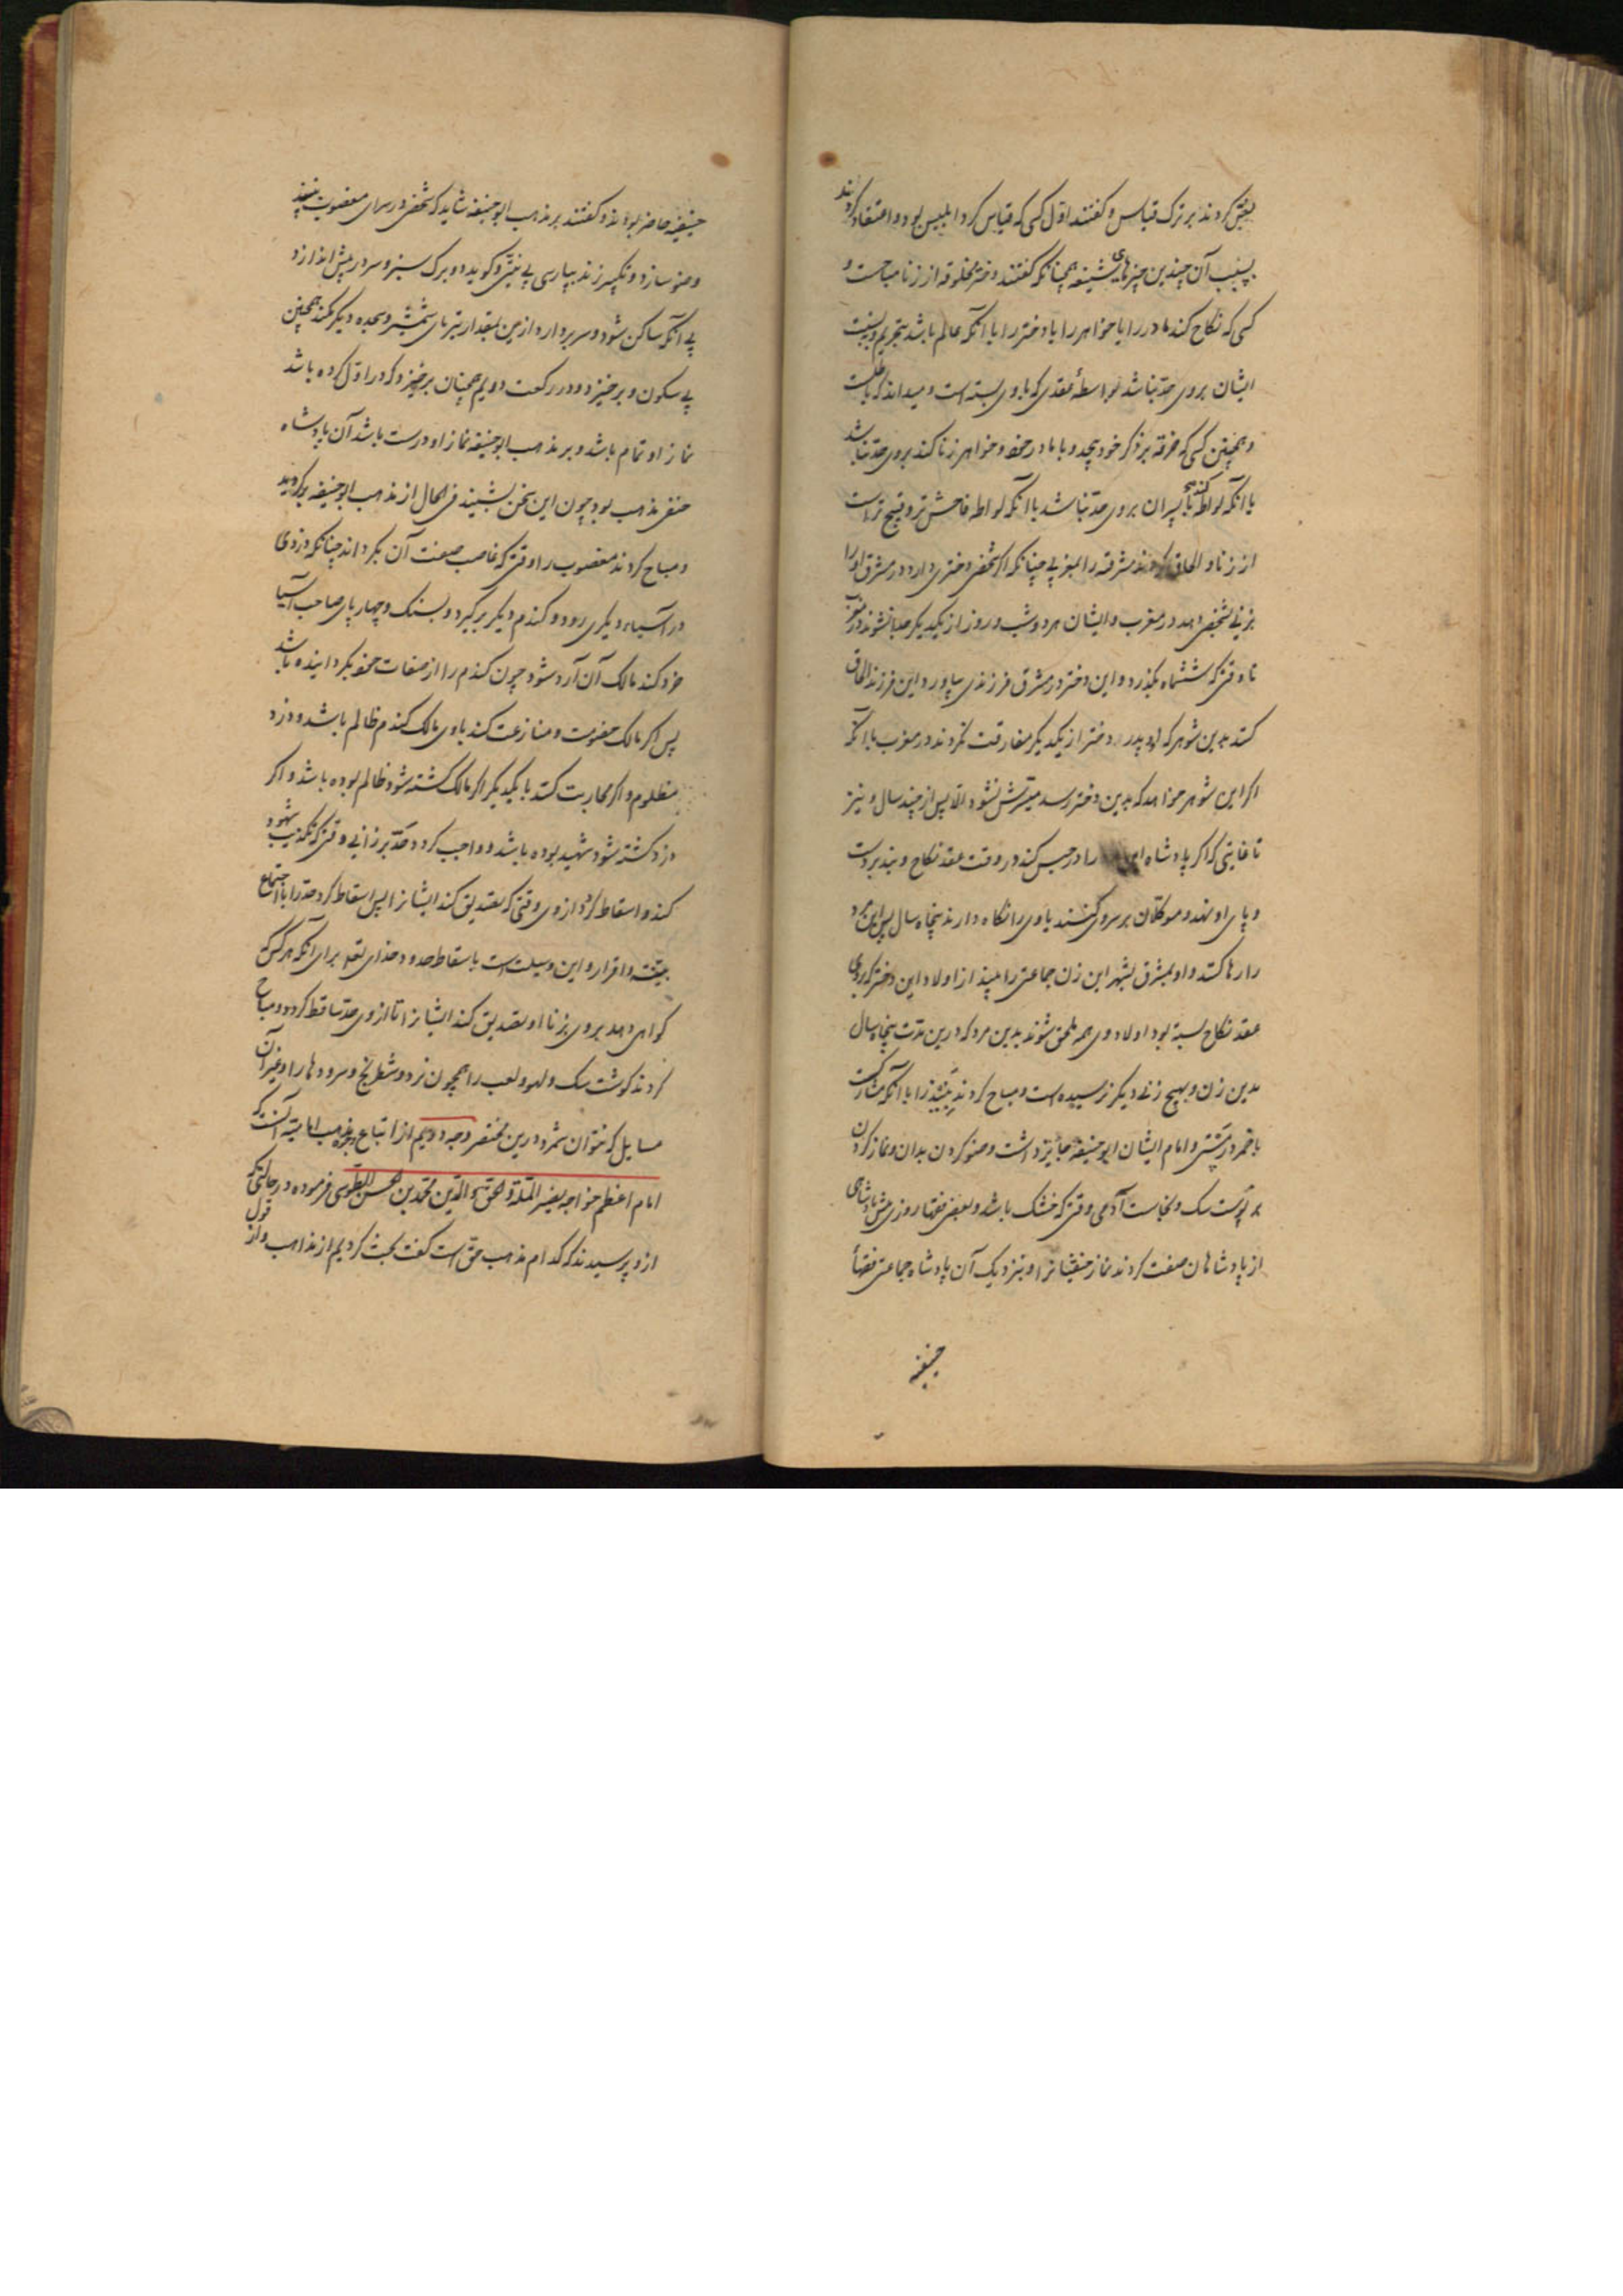 بعقل کردند بر ترک قیاس و گفتند اول کسی که قیاس کرد ابلیس بود و اعتقاد کردند
بسبب آن چندین چیزهای شنیعه همچنانکه گفتند دختر مخلوقه از زنا مباحست و
کسی که نکاح کند مادر را یا خواهر را یا دختر را با آنکه عالم باشد بتحریم و نسبت
ایشان بروی حد نباشد بواسطهٔ عقدی که با وی بسته است و میداند که باطلست
و همچنین کسی که خرقه بر ذکر خود پیچد و با مادر خود و خواهر زنا کند بروی حد نباشد
با آنکه لواطه کند با پسران بروی حد نباشد با آنکه لواطه فاحش‌تر و قبیح‌تر است
از زنا و الحاق کردند مشرقیه را بمغربی چنانکه اگر شخصی دختری دارد در مشرق او را
بزنی بشخصی دهد در مغرب و ایشان هر دو شب و روز از یکدیگر جدا نشوند در مغرب
تا وقتی که ششماه بگذرد و این دختر در مشرق فرزندی بیاورد این فرزند الحاق
کنند بدین شوهر که او و پدر دختر از یکدیگر مفارقت نکردند در مغرب با آنکه
اگر این شوهر خواهد که بدین دختر رسد میسرش نشود الا پس از چند سال و نیز
تا غایتی که اگر پادشاه را در حبس کند در وقت عقد نکاح و بند بر دست
و پای او نهد و موکلان بر سر وی کنند یا وی را نگاه دارند پنجاه سال پس این مرد
را رها کنند و او بمشرق بشهر این زن جماعتی را بیند از اولاد این دختر که بروی
عقد نکاح بسته بود اولاد وی همه ملحق شوند بدین مرد که درین مدت پنجاه سال
بدین زن و بهیچ زنی دیگر نرسیده است و مباح کردند نبیذ را با آنکه مشارکست
با خمر در مستی و امام ایشان ابوحنیفه جایز داشت وضو کردن بدان و نماز کردن
بر پوست سگ و نجاست آدمی وقتی که خشک باشد و بعضی فقها روزی پیش پادشاهی
از پادشاهان صفت کردند نماز حنفیانرا و بنزدیک آن پادشاه جماعتی فقها
حنیفه
حنیفه حاضر بودند و گفتند بر مذهب ابوحنیفه شاید که شخصی در سرای مغصوب بنبیذ
وضو سازد و تکبیر زند بپارسی بی نیتی و گوید دو برگ سبز و سر در پیش اندازد
بی آنکه ساکن شود و سر بردارد ازین بمقدار تیزنای شمشیر و سجده دیگر کند همچنین
بی سکون و برخیزد و در رکعت دویم همچنان برخیزد که در اول کرده باشد
نماز او تمام باشد و بر مذهب ابوحنیفه نماز او درست باشد آن پادشاه
حنفی مذهب بود چون این سخن بشنید فی الحال از مذهب ابوحنیفه برگردید
و مباح کردند مغصوب را وقتی که غاصب صفت آن بگرداند چنانکه دزدی
در آسیاء دیگری رود و گندم دیگر برگیرد و بسنگ و چهارپای صاحب آسیا
خرد کند مالک آن آرد شود چون گندم را از صفات خود بگردانیده باشد
پس اگر مالک خصومت و منازعت کند با وی مالک گندم ظالم باشد و دزد
مظلوم و اگر محاربت کنند با یکدیگر اگر مالک کشته شود ظالم بوده باشد و اگر
دزد کشته شود شهید بوده باشد و واجب کردند حد بر زانی وقتی که تکذیب شهود
کند و اسقاط کردند از وی وقتی که تصدیق کند ایشانرا پس اسقاط کرد حد را با اجتماع
بینه و اقرار و این وسیلت است باسقاط حدود خدای تعه برای آنکه هر کس که
گواهی دهد بروی بزنا او تصدیق کند ایشانرا تا از وی حد ساقط گردد و مباح
کردند گوشت سگ و لهو و لعب را همچون نرد و شطرنج و سرودها را و غیر آن
مسایل که نتوان شمرد درین مختصر وجه دویم از اتباع مذهب امامیه آنست که
امام اعظم خواجه نصیر الملة و الحق و الدین محمد بن الحسن الطوسی فرموده در حالتی که
ازو پرسیدند که کدام مذهب حق است گفت بحث کردیم از مذاهب و از قول